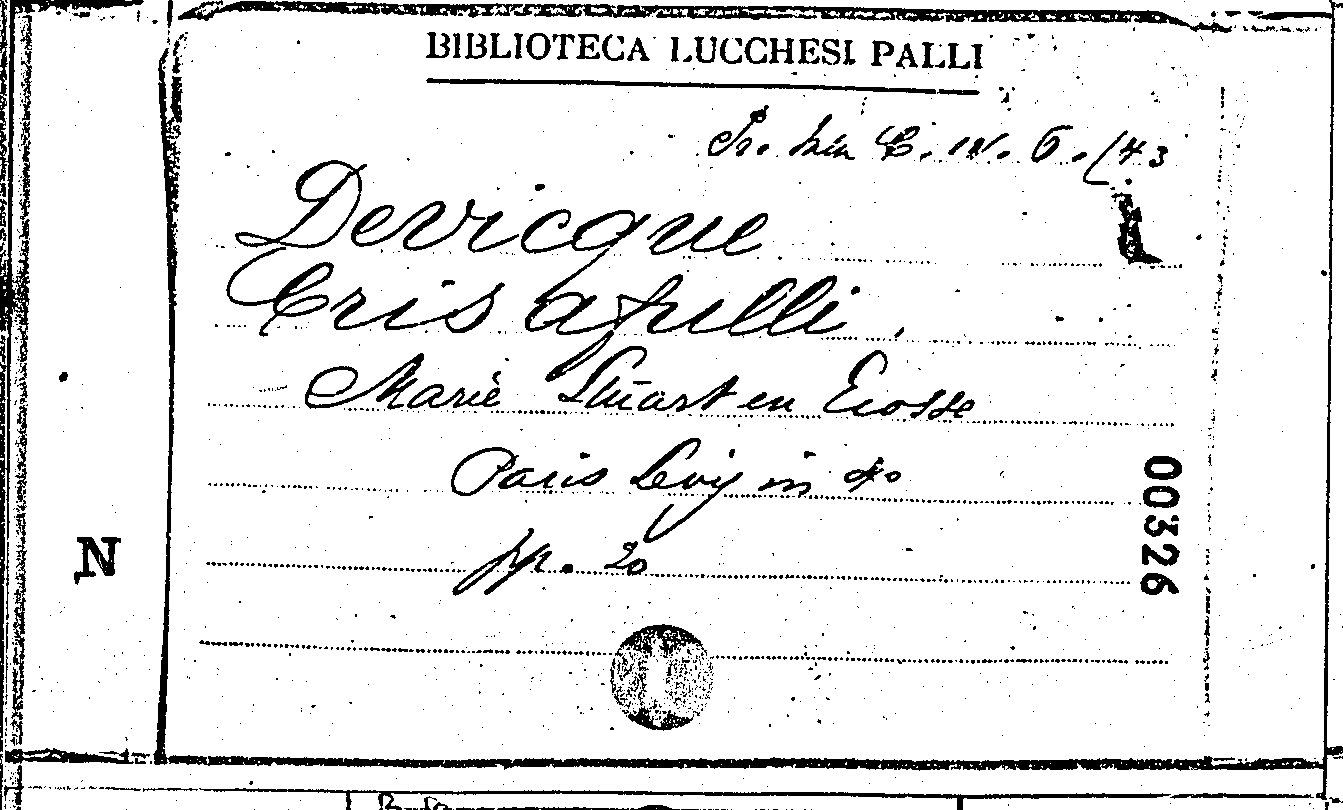 BIBLIOTECA LUCCHESI PALLI
Pr. Min C. IV. 6. (43
Devicque
Crisafulli.
Marie Stuart en Ecosse
Paris Levy in 4º
pp. 20
N
00326